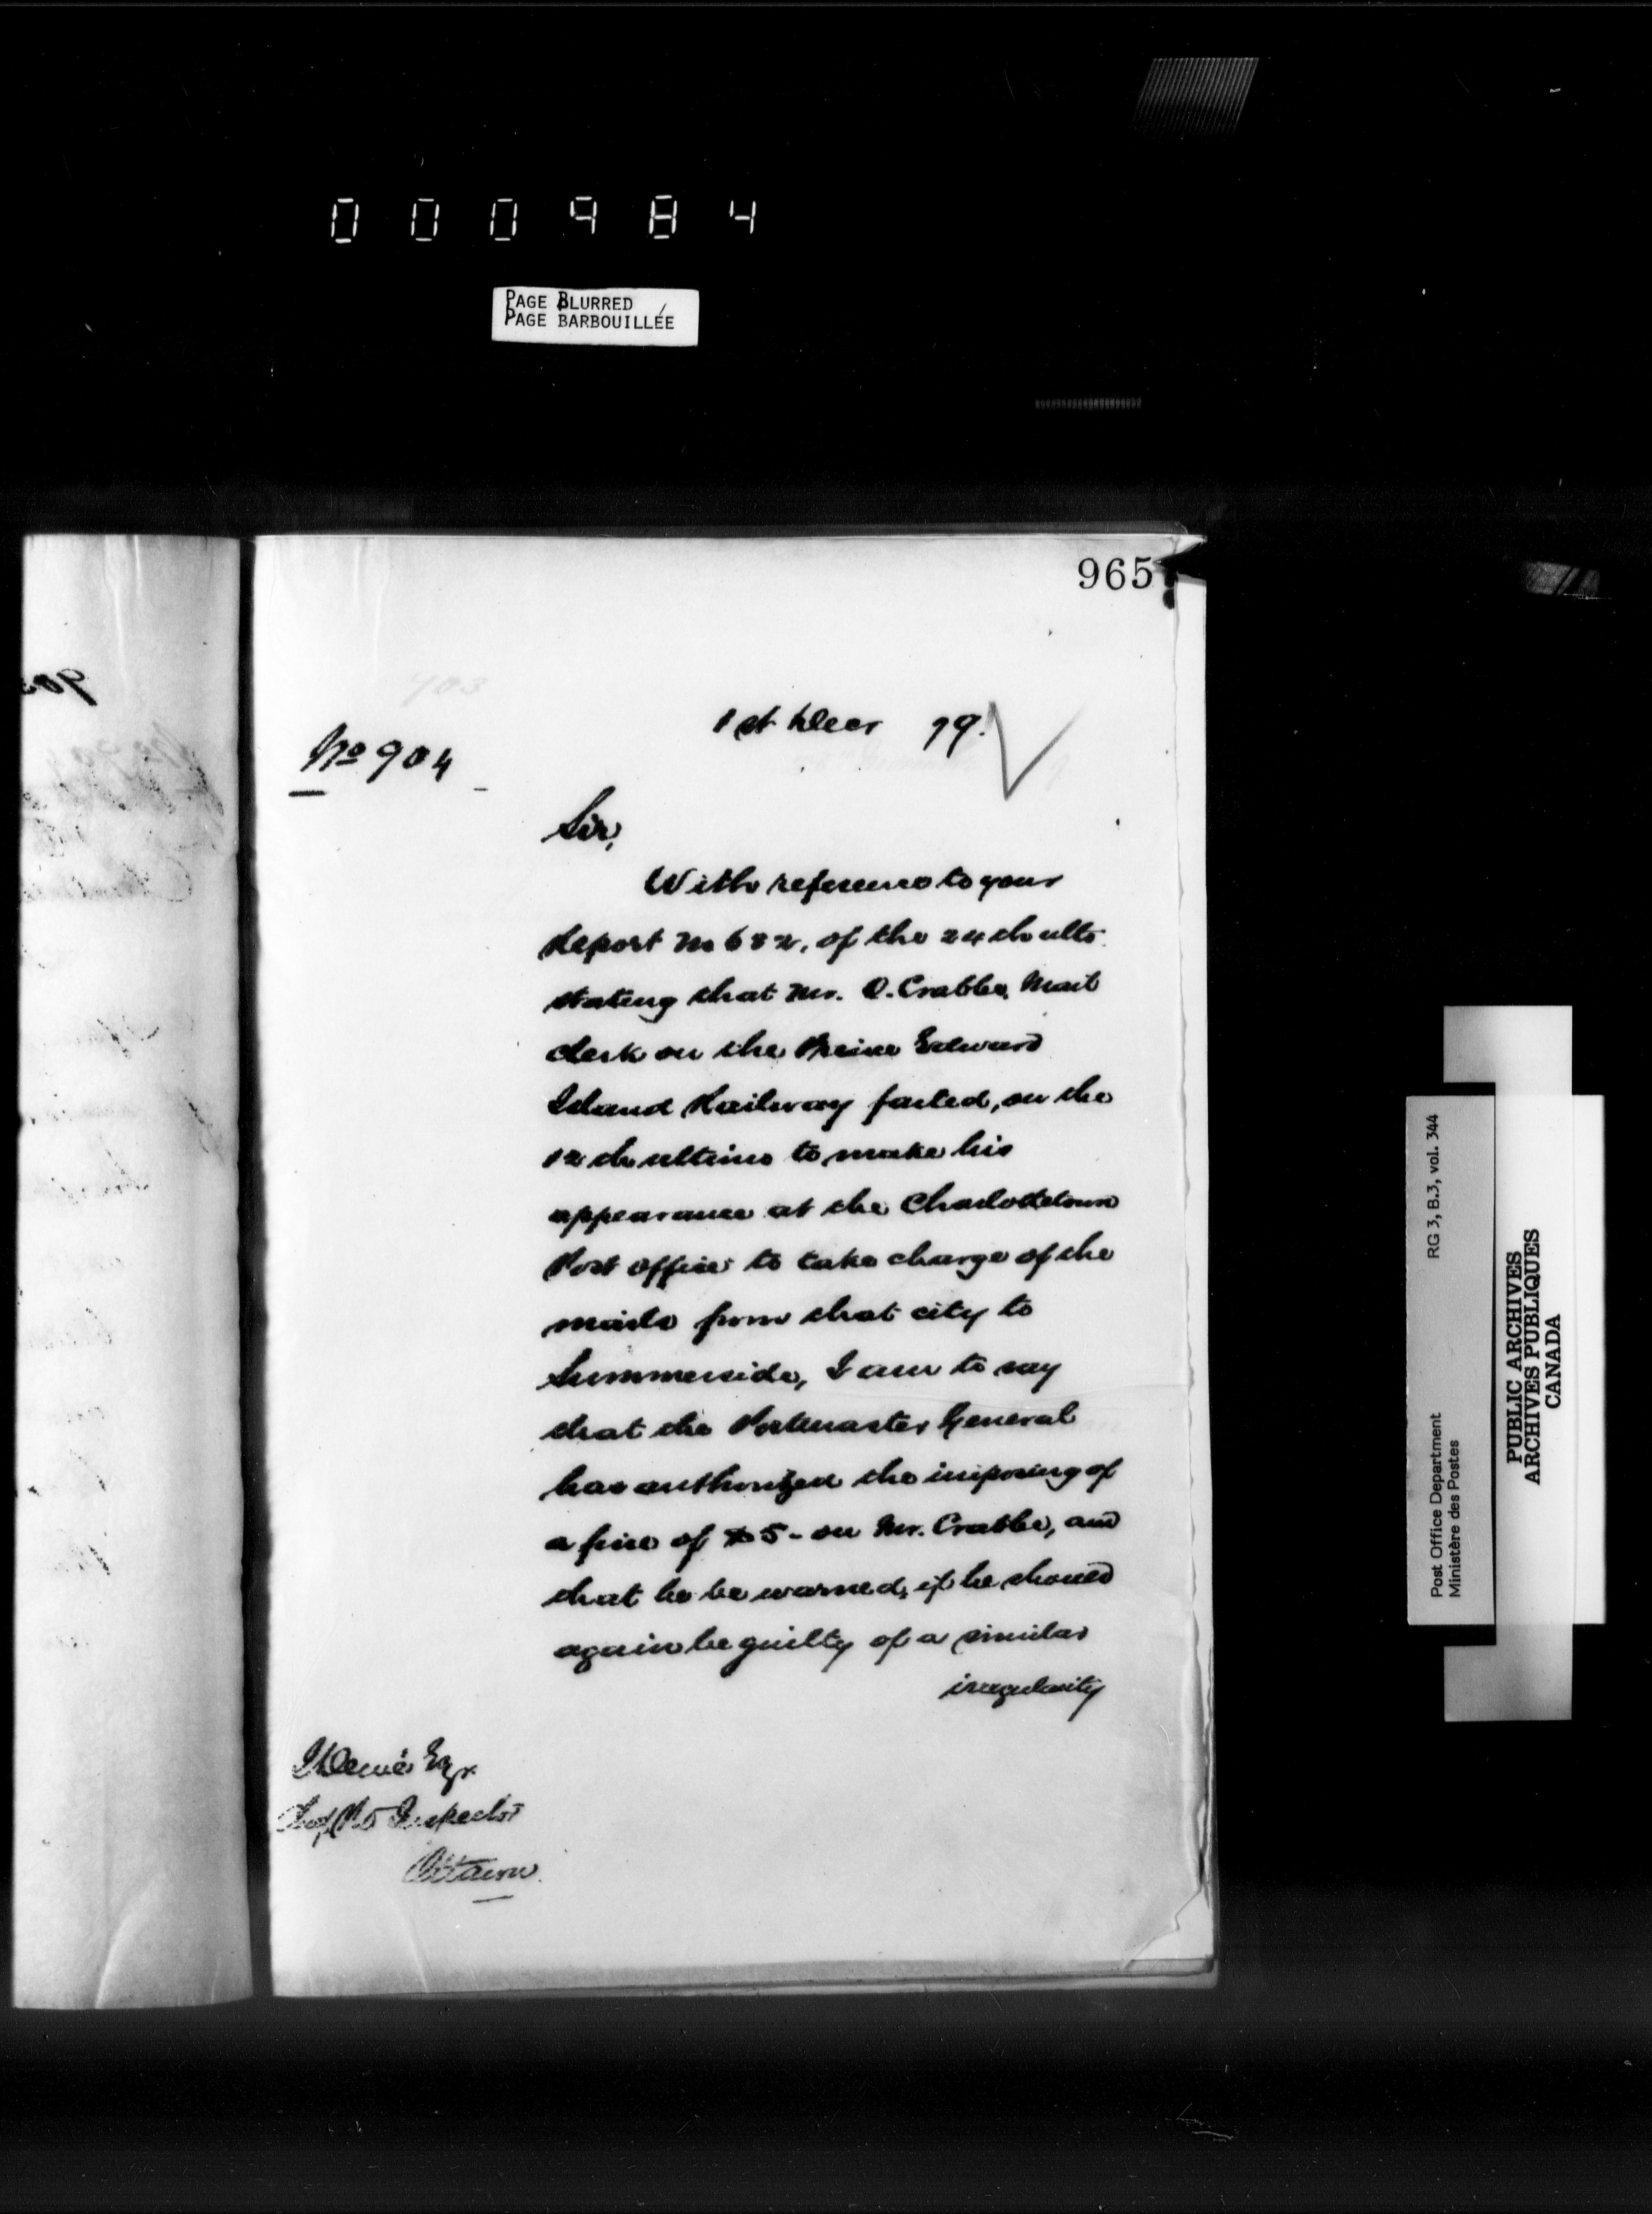 000984
PAGE BLURRED
PAGE BARBOUILLÉE
965
1st Decr 79.
No 904
Sir,
With reference to your
Report No 682, of the 24th ulto
stating that Mr. O. Crabbe, Mail
Clerk on the Prince Edward
Island Railway failed, on the
12th ultimo to make his
appearance at the Charlottetown
Post Office to take charge of the
mails from that city to
Summerside, I am to say
that the Postmaster General
has authorized the imposing of
a fine of $5- on Mr. Crabbe, and
that he be warned, if he should
again be guilty of a similar
irregularity
Dewé Esqr
Chief P.O Inspector
Ottawa.
Post Office Department RG 3, B.3, vol. 344
Ministère des Postes
PUBLIC ARCHIVES
ARCHIVES PUBLIQUES
CANADA